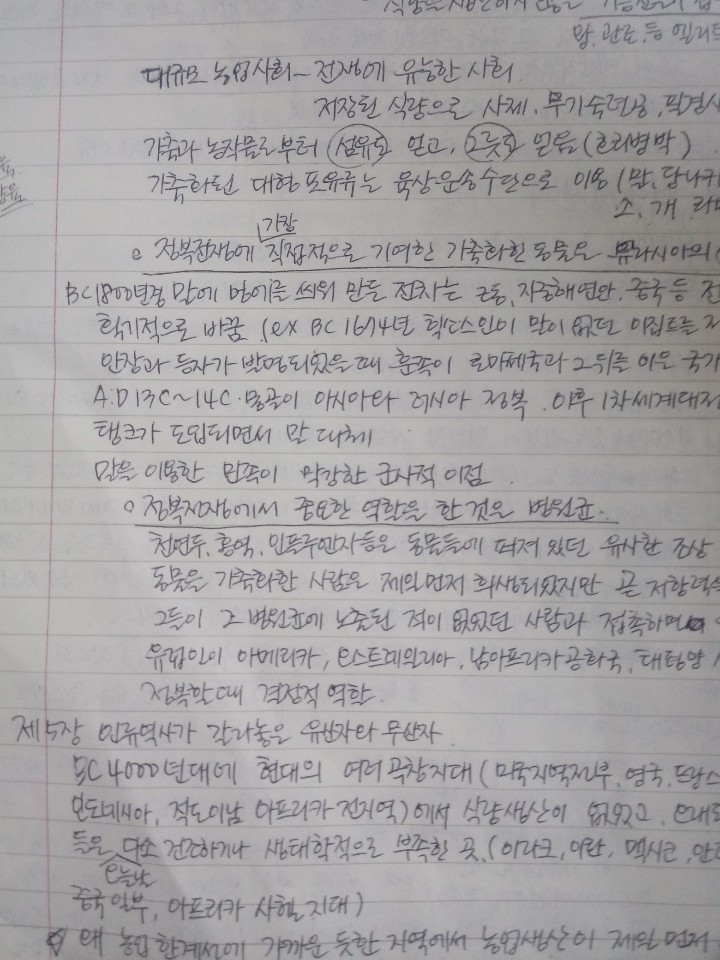 왕, 관료 등 엘리트
대규모 농업사회 ~ 전쟁에 유능한 사회
저장된 식량으로 사제, 무기숙련공, 필경사
가축과 농작물로부터 섬유를 얻고, 그릇을 얻음 (호리병박)
가축화된 대형 포유류는 육상운송수단으로 이용 (말, 당나귀
소, 개 라마
가장
o 정복전쟁에 직접적으로 기여한 가축화된 동물은 유라시아의
BC1800년경 말에 멍에를 씌워 만든 전차는 근동, 지중해연안, 중국 등 전
획기적으로 바꿈. (ex BC 1674년 힉소스인이 말이 없던 이집트를 정
안장과 등자가 발명되었을 때 훈족이 로마제국과 그 뒤를 이은 국가
A.D 13C~14C 몽골이 아시아와 러시아 정복. 이후 1차세계대전
탱크가 도입되면서 말 대체
말을 이용한 민족이 막강한 군사적 이점.
o 정복전쟁에서 중요한 역할을 한 것은 병원균.
천연두, 홍역, 인플루엔자등은 동물들에 퍼져 있던 유사한 조상
동물을 가축화한 사람은 제일먼저 희생되었지만 곧 저항력을
그들이 그 병원균에 노출된 적이 없었던 사람과 접촉하면
유럽인이 아메리카, 오스트레일리아, 남아프리카공화국, 태평양
정복할때 결정적 역할.
제5장 인류역사가 갈라놓은 유산자와 무산자
BC 4000년대에 현대의 여러 곡창지대 (미국지역전부, 영국, 프랑스
인도네시아, 적도이남 아프리카 전지역) 에서 식량생산이 없었고,
들은 다소 건조하거나 생태학적으로 부족한 곳. (이라크, 이란, 멕시코, 안
오늘날
중국일부, 아프리카 사헬지대)
왜 농업 한계선에 가까운 듯한 지역에서 농업생산이 제일 먼저